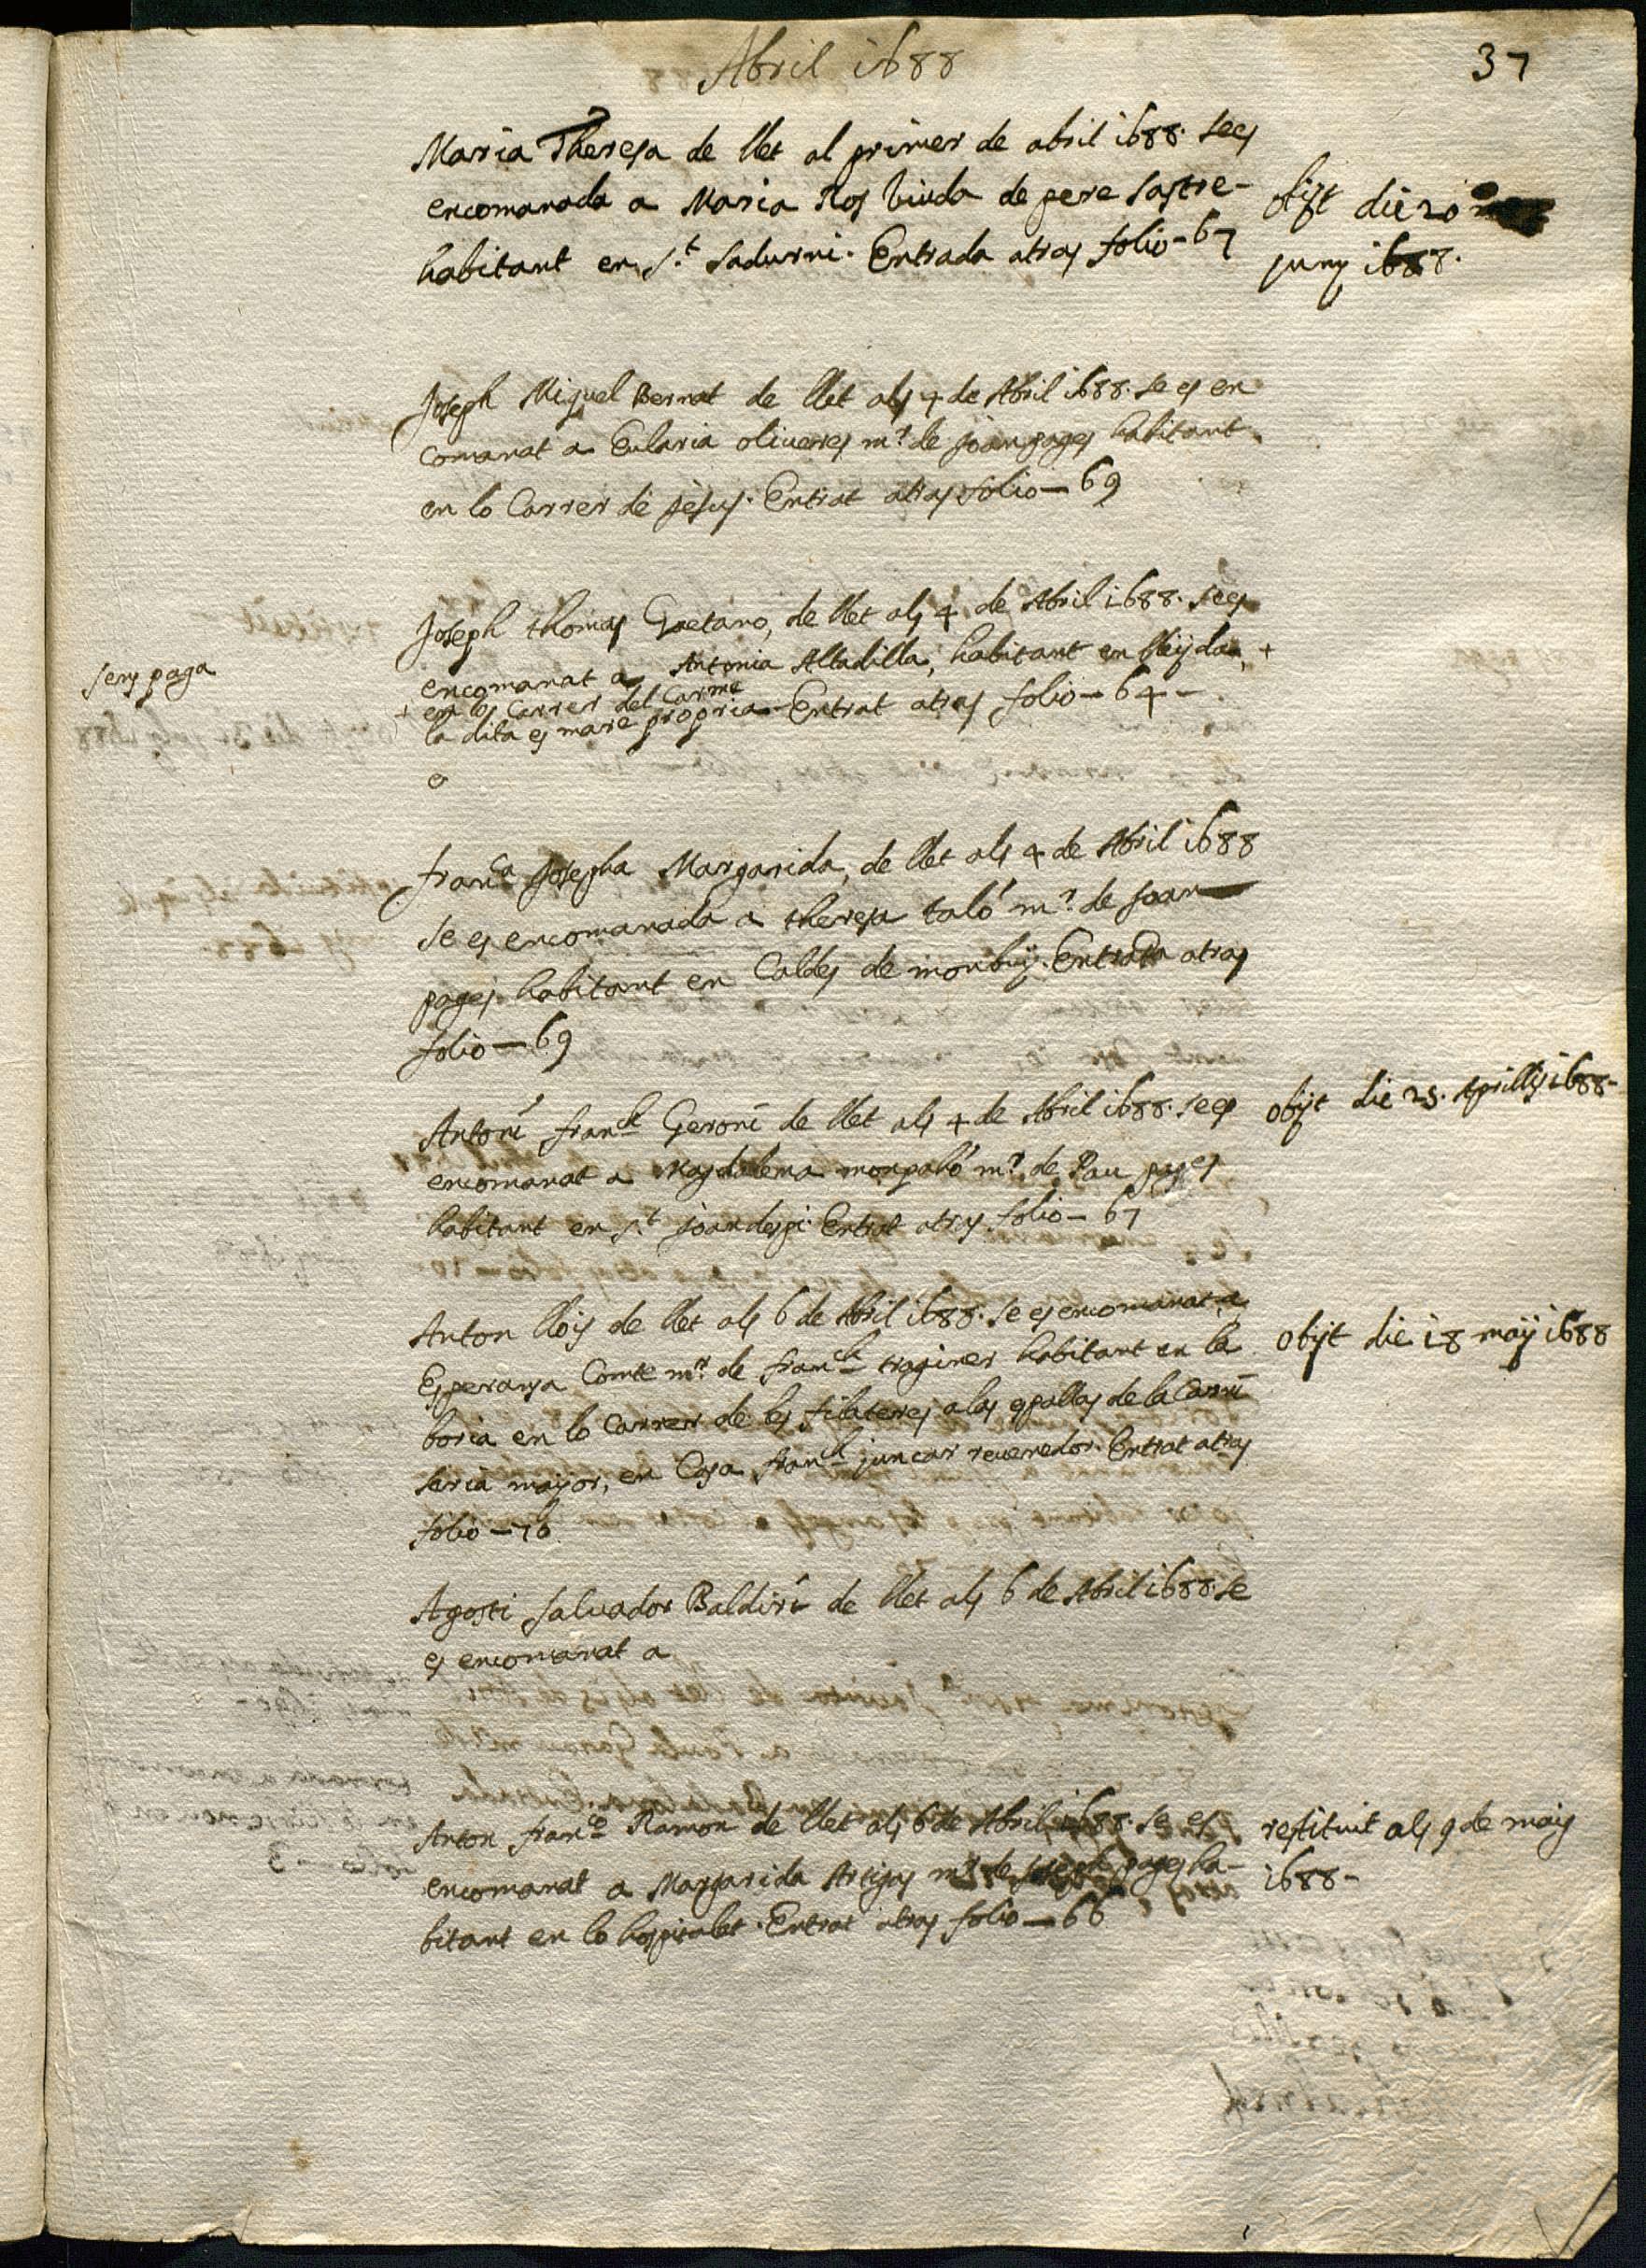 Abril 1688
37
Maria Theresa de llet al primer de abril 1688. se es
encomanada a Maria Ros viuda de pere sastre-
habitant en s.t Sadurni. Entrada atras folio - 67
obijt die 20
juny 1688.
Joseph Miquel Bernat de llet als 4 de Abril 1688. se es en
comanat a Eularia oliueres m.r de joan pages habitant
en lo Carrer de jesus. Entrat atras folio - 69
Joseph thomas Gaetano, de llet als 4 de Abril 1688. se es
encomanat a Antonia Altadilla, habitant en lleyda, +
sens paga
+ en lo Carrer del Carme
la dita es mare propria. Entrat atras folio - 64 -
fran.ca Josepha Margarida, de llet als 4 de Abril 1688
se es encomanada a theresa taló m.r de joan
pages habitant en Caldes de monbuy. Entrada atras
folio - 69
Antoni fran.ch Geroni de llet als 4 de Abril 1688. se es
encomanat a Magdalena monpaló m.r de Pau pages
habitant en s.t joan despi. Entrat atras folio - 67
obijt die 25. Aprillis 1688-
Anton llois de llet als 6 de Abril 1688. se es encomanat a
Esperansa Comte m.r de fran.ch traginer habitant en la
boria en lo Carrer de les filateres a las espallas de la Carni
seria major, en Casa fran.ch juncar reuenedor. Entrat atras
folio - 70
obijt die 18 maij 1688
Agosti saluador Baldiri de llet als 6 de Abril 1688. se
es encomanat a
Anton fran.co Ramon de llet als 6 de Abril 1688. se es
encomanat a Margarida Artigas m.r de joseph pages ha-
bitant en lo hospitalet. Entrat atras folio - 66
restituit als 9 de maig
1688-